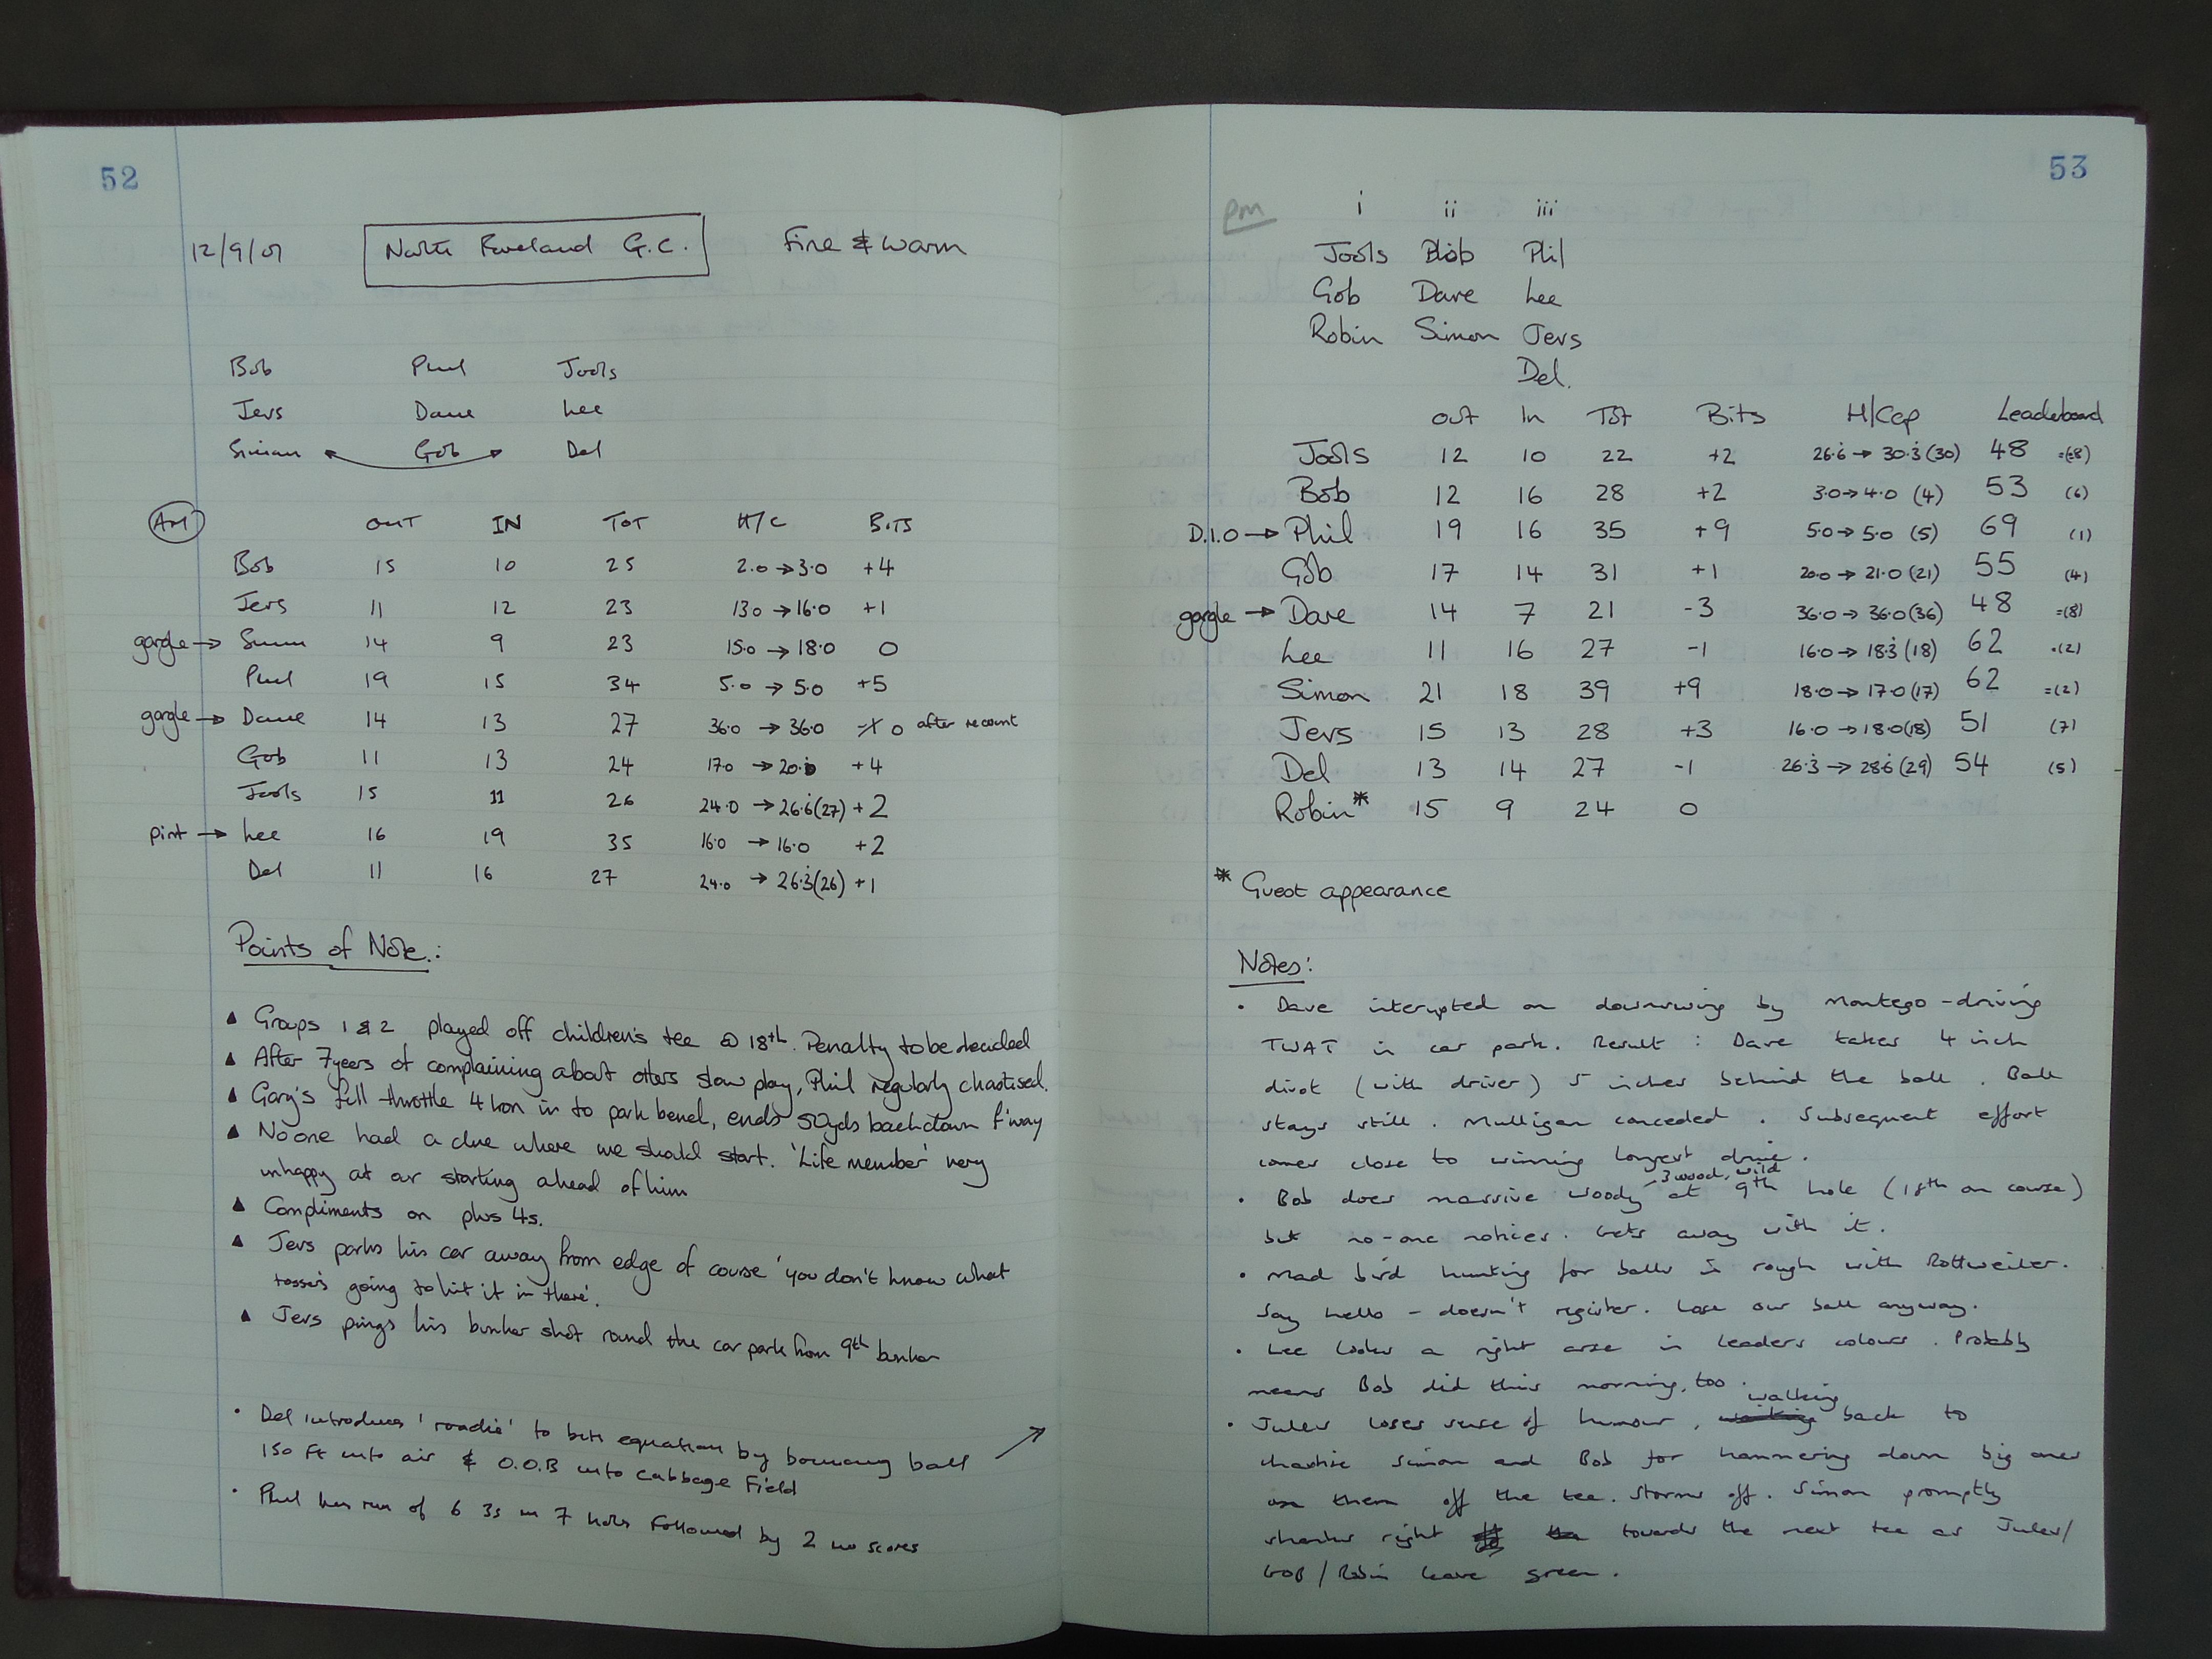 52
12/9/01 North Foreland G.C. Fine & warm
Bob Phil Jools
Jers Dave Lee
Simon Gob Del
AM OUT IN TOT H/C BITS
Bob 15 10 25 2.0 → 3.0 +4
Jers 11 12 23 13.0 → 16.0 +1
gargle → Simon 14 9 23 15.0 → 18.0 0
Phil 19 15 34 5.0 → 5.0 +5
gargle → Dave 14 13 27 36.0 → 36.0 0 after recount
Gob 11 13 24 17.0 → 20.0 +4
Jools 15 11 26 24.0 → 26.6 (27) +2
pint → Lee 16 19 35 16.0 → 16.0 +2
Del 11 16 27 24.0 → 26.3 (26) +1
Points of Note.:
▲ Groups 1 & 2 played off children's tee @ 18th. Penalty to be decided
▲ After 7 years of complaining about others slow play, Phil regularly chastised.
▲ Gary's full throttle 4 iron in to park bench, ends 50yds back down f'way
▲ No one had a clue where we should start. 'Life member' very
unhappy at our starting ahead of him
▲ Compliments on plus 4s.
▲ Jers parks his car away from edge of course 'you don't know what
tosser's going to hit it in there'.
▲ Jers pings his bunker shot round the car park from 9th bunker
• Del introduces 'roadie' to bits equation by bouncing ball
150 ft into air & O.O.B into cabbage field
• Phil has run of 6 3s in 7 holes followed by 2 no scores
53
pm i ii iii
Jools Blob Phil
Gob Dave Lee
Robin Simon Jers
Del.
out In Tot Bits H/Cap Leaderboard
Jools 12 10 22 +2 26.6 → 30.3 (30) 48 =(8)
Bob 12 16 28 +2 3.0 → 4.0 (4) 53 (6)
D.I.O → Phil 19 16 35 +9 5.0 → 5.0 (5) 69 (1)
Gob 17 14 31 +1 20.0 → 21.0 (21) 55 (4)
gargle → Dave 14 7 21 -3 36.0 → 36.0 (36) 48 =(8)
Lee 11 16 27 -1 16.0 → 18.3 (18) 62 =(2)
Simon 21 18 39 +9 18.0 → 17.0 (17) 62 =(2)
Jers 15 13 28 +3 16.0 → 18.0 (18) 51 (7)
Del 13 14 27 -1 26.3 → 28.6 (29) 54 (5)
Robin* 15 9 24 0
* Guest appearance
Notes:
• Dave interupted on downswing by Montego-driving
TWAT in car park. Result: Dave takes 4 inch
divot (with driver) 5 inches behind the ball. Ball
stays still. Mulligan conceded. Subsequent effort
comes close to winning longest drive.
• Bob does massive woody - 3 wood, wild at 9th hole (18th on course)
but no-one notices. Gets away with it.
• Mad bird hunting for balls in rough with Rottweiler.
Say hello - doesn't register. Lose our ball anyway.
• Lee looks a right arse in leaders colours. Probably
means Bob did this morning, too.
• Jules loses sense of humour, walking back to
chastise Simon and Bob for hammering down big ones
them off the tee. Storms off. Simon promptly
shanks right towards the next tee as Jules/
GOB/Robin leave green.